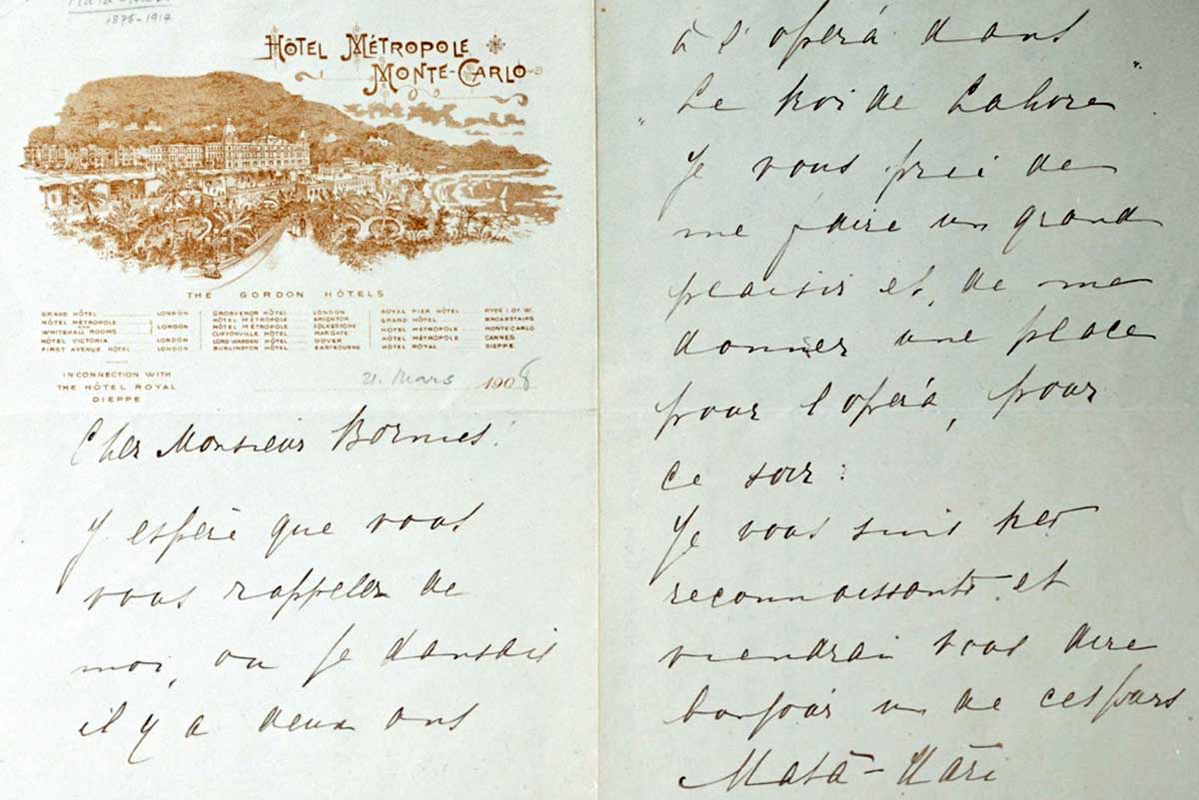 1876-1917
HÔTEL MÉTROPOLE
MONTE-CARLO
THE GORDON HÔTELS
GRAND HÔTEL LONDON
HÔTEL MÉTROPOLE
AND
WHITEHALL ROOMS LONDON
HÔTEL VICTORIA LONDON
FIRST AVENUE HÔTEL LONDON
GROSVENOR HÔTEL LONDON
HÔTEL MÉTROPOLE BRIGHTON
HÔTEL MÉTROPOLE FOLKESTONE
CLIFTONVILLE HÔTEL MARGATE
LORD WARDEN HÔTEL DOVER
BURLINGTON HÔTEL EASTBOURNE
ROYAL PIER HÔTEL RYDE I. OF W.
GRAND HÔTEL BROADSTAIRS
HÔTEL MÉTROPOLE MONTE-CARLO
HÔTEL MÉTROPOLE CANNES
HÔTEL ROYAL DIEPPE
IN CONNECTION WITH
THE HÔTEL ROYAL
DIEPPE
21. Mars 1908
Cher Monsieur
J espère que vous
vous rappeler de
moi, ou je dansais
il y a deux ans
à l'opera dans
"Le Roi de Lahore"
Je vous prie de
me faire un grand
plaisir et, de me
donner une place
pour l'opéra, pour
ce soir:
Je vous suis tres
reconnaissante et
viendrai vous dire
bonjour un de ces jours
Mata-Hari